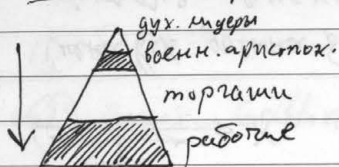 дух. лидеры
военн. аристок.
торгаши
рабочие